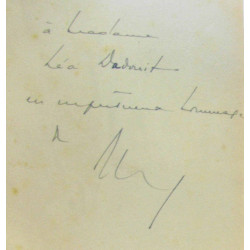 à Madame
Léa Dadouit
en respectueux hommage
de